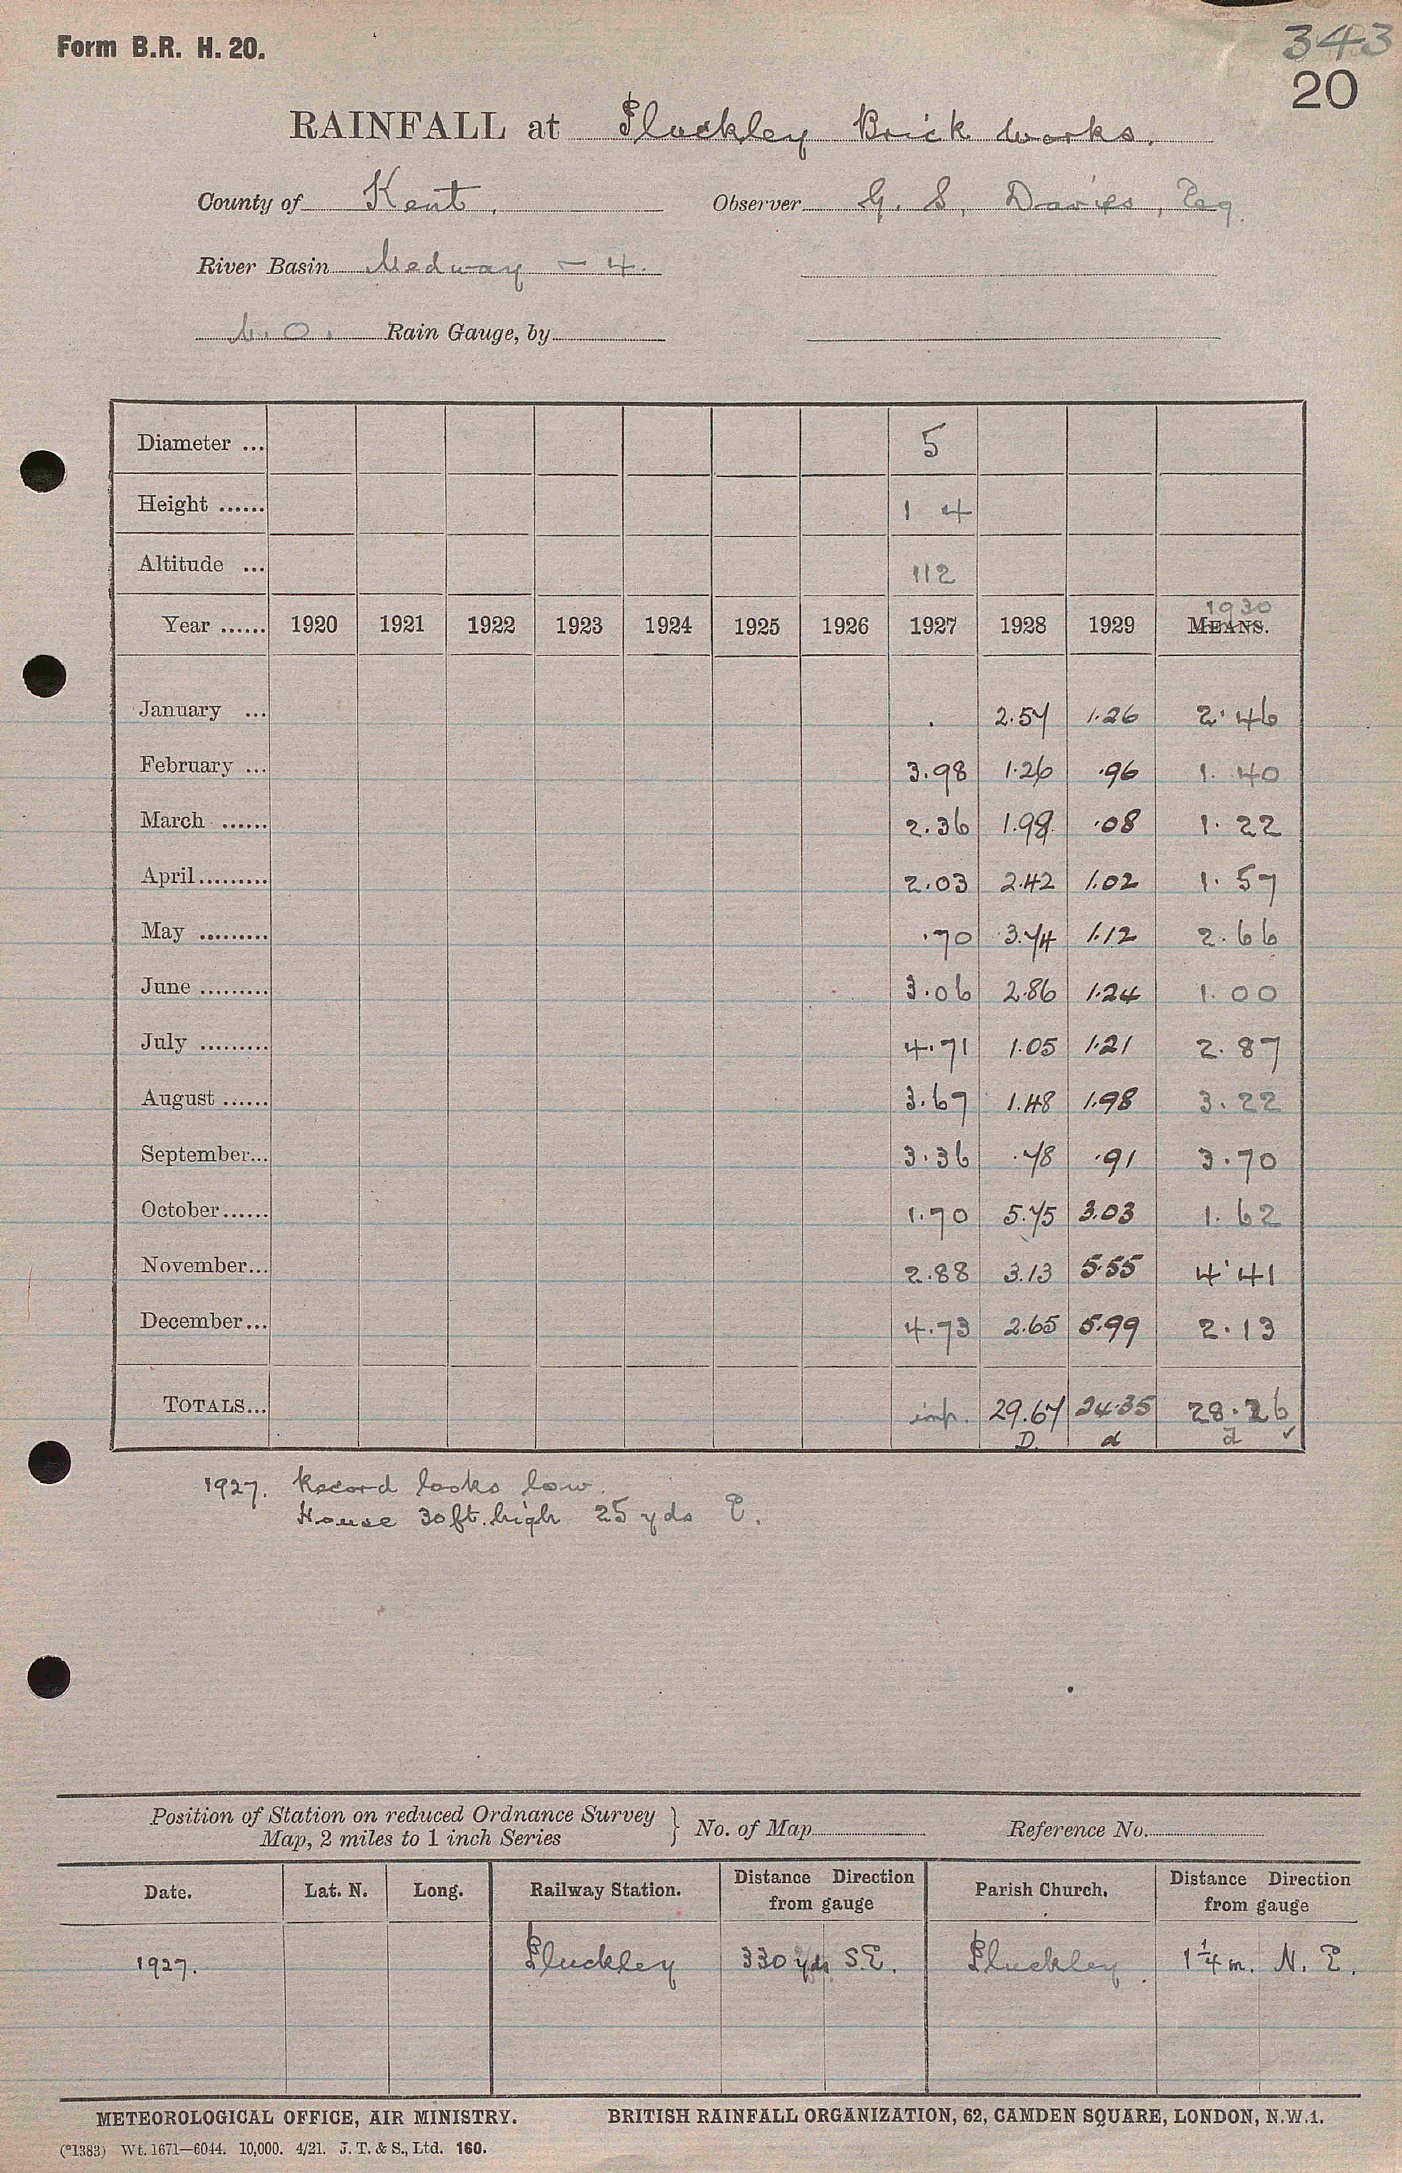 Form B.R. H. 20.
343
20
RAINFALL at Pluckley Brick Works.
County of Kent. Observer G. S. Davies, Esq.
River Basin Medway - 4.
M.O. Rain Gauge, by
Diameter ... 5
Height ...... 1 4
Altitude ... 112
1930
Year ...... 1920 1921 1922 1923 1924 1925 1926 1927 1928 1929 MEANS.
January ... . 2.57 1.26 2.46
February ... 3.98 1.26 .96 1.40
March ...... 2.36 1.98 .08 1.22
April ......... 2.03 2.42 1.02 1.57
May ......... .70 3.74 1.12 2.66
June ......... 3.06 2.86 1.24 1.00
July ......... 4.71 1.05 1.21 2.87
August ...... 3.67 1.48 1.98 3.22
September... 3.36 .78 .91 3.70
October...... 1.70 5.75 3.03 1.62
November... 2.88 3.13 5.55 4.41
December... 4.73 2.65 5.99 2.13
TOTALS... imp. 29.67 24.35 28.26
D. d d ✓
1927. Record looks low.
House 30 ft. high 25 yds E.
Position of Station on reduced Ordnance Survey
Map, 2 miles to 1 inch Series } No. of Map Reference No.
Date. Lat. N. Long. Railway Station. Distance Direction from gauge Parish Church. Distance Direction from gauge
1927. Pluckley 330 yds S.E. Pluckley. 1¼ m. N. E.
METEOROLOGICAL OFFICE, AIR MINISTRY. BRITISH RAINFALL ORGANIZATION, 62, CAMDEN SQUARE, LONDON, N.W.1.
(*1383) Wt. 1671—6044. 10,000. 4/21. J. T. & S., Ltd. 160.